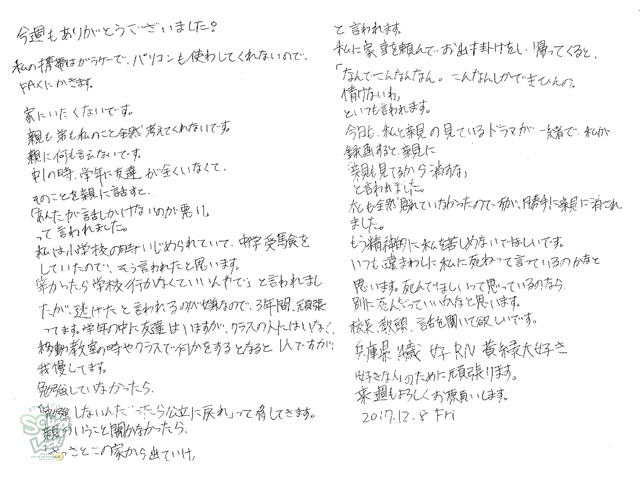 今週もありがとうございました！
私の携帯はガラケーで、パソコンも使わしてくれないので、
FAXにかきます。
家にいたくないです。
親も弟も私のこと全然考えてくれないです。
親に何も言えないです。
中1の時、学年に友達が全くいなくて、
そのことを親に話すと、
「あんたが話しかけないのが悪い」
って言われました。
私は小学校の時いじめられていて、中学受験を
していたので、そう言われたと思います。
辛かったら学校行かなくていいんやで」と言われまし
たが、逃げたと言われるのが嫌なので、3年間、頑張
ってます。学年の中に友達はいますが、クラスの人にはいなく、
移動教室の時やクラスで何かをするとなると1人ですが、
我慢してます。
勉強していなかったら、
勉強しないんだったら公立に戻れ」って脅してきます。
親のいうこと聞かなかったら、
さっさとこの家から出ていけ」
と言われます。
私に家事を頼んでお出掛けをし、帰ってくると、
「なんでこんなんなん。こんなんしかできひんの。
情けないわ」
といつも言われます。
今日も、私と親の見ているドラマが一緒で、私が
録画すると、親に
「親も見てるから消すな」
と言われました。
私も全然見れていなかったので
勝手に親に消され
ました。
もう精神的に私を苦しめないでほしいです。
いつも遠まわしに私に死ねって言っているのかなと
思います。死んでほしいって思っているなら、
別に死んだっていいかなと思います。
校長、教頭、話を聞いて欲しいです。
兵庫県 14歳 女 RN 黄緑大好き
好きな人のために頑張ります。
来週もよろしくお願いします。
2017.12.8 Fri